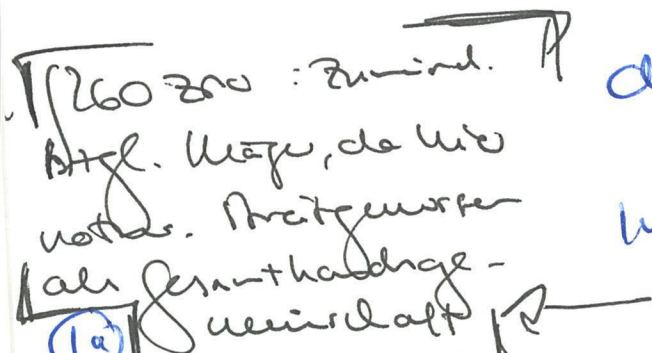 § 260 ZPO : Zumind.
bzgl. Kläger, da hier
notw. Streitgenossen
als Gesamthandsge-
meinschaft
1a